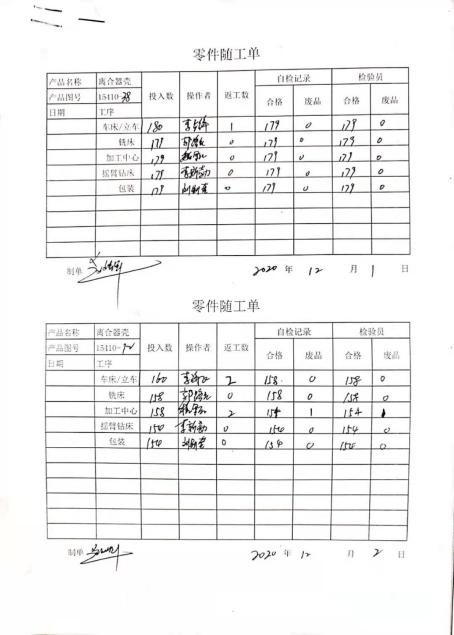 零件随工单
产品名称 离合器壳 投入数 操作者 返工数 自检记录 检验员
产品图号 15410-38 合格 废品 合格 废品
日期 工序
车床/立车 180 1 179 0 179 0
铣床 179 0 179 0 179 0
加工中心 179 0 179 0 179 0
摇臂钻床 179 0 179 0 179 0
包装 179 0 179 0 179 0
制单 2020 年 12 月 1 日
零件随工单
产品名称 离合器壳 投入数 操作者 返工数 自检记录 检验员
产品图号 15410- 合格 废品 合格 废品
日期 工序
车床/立车 160 2 158 0 158 0
铣床 158 0 158 0 158 0
加工中心 158 2 154 1 154
摇臂钻床 154 0 154 0 154 0
包装 154 0 154 0 154 0
制单 2020 年 12 月 2 日